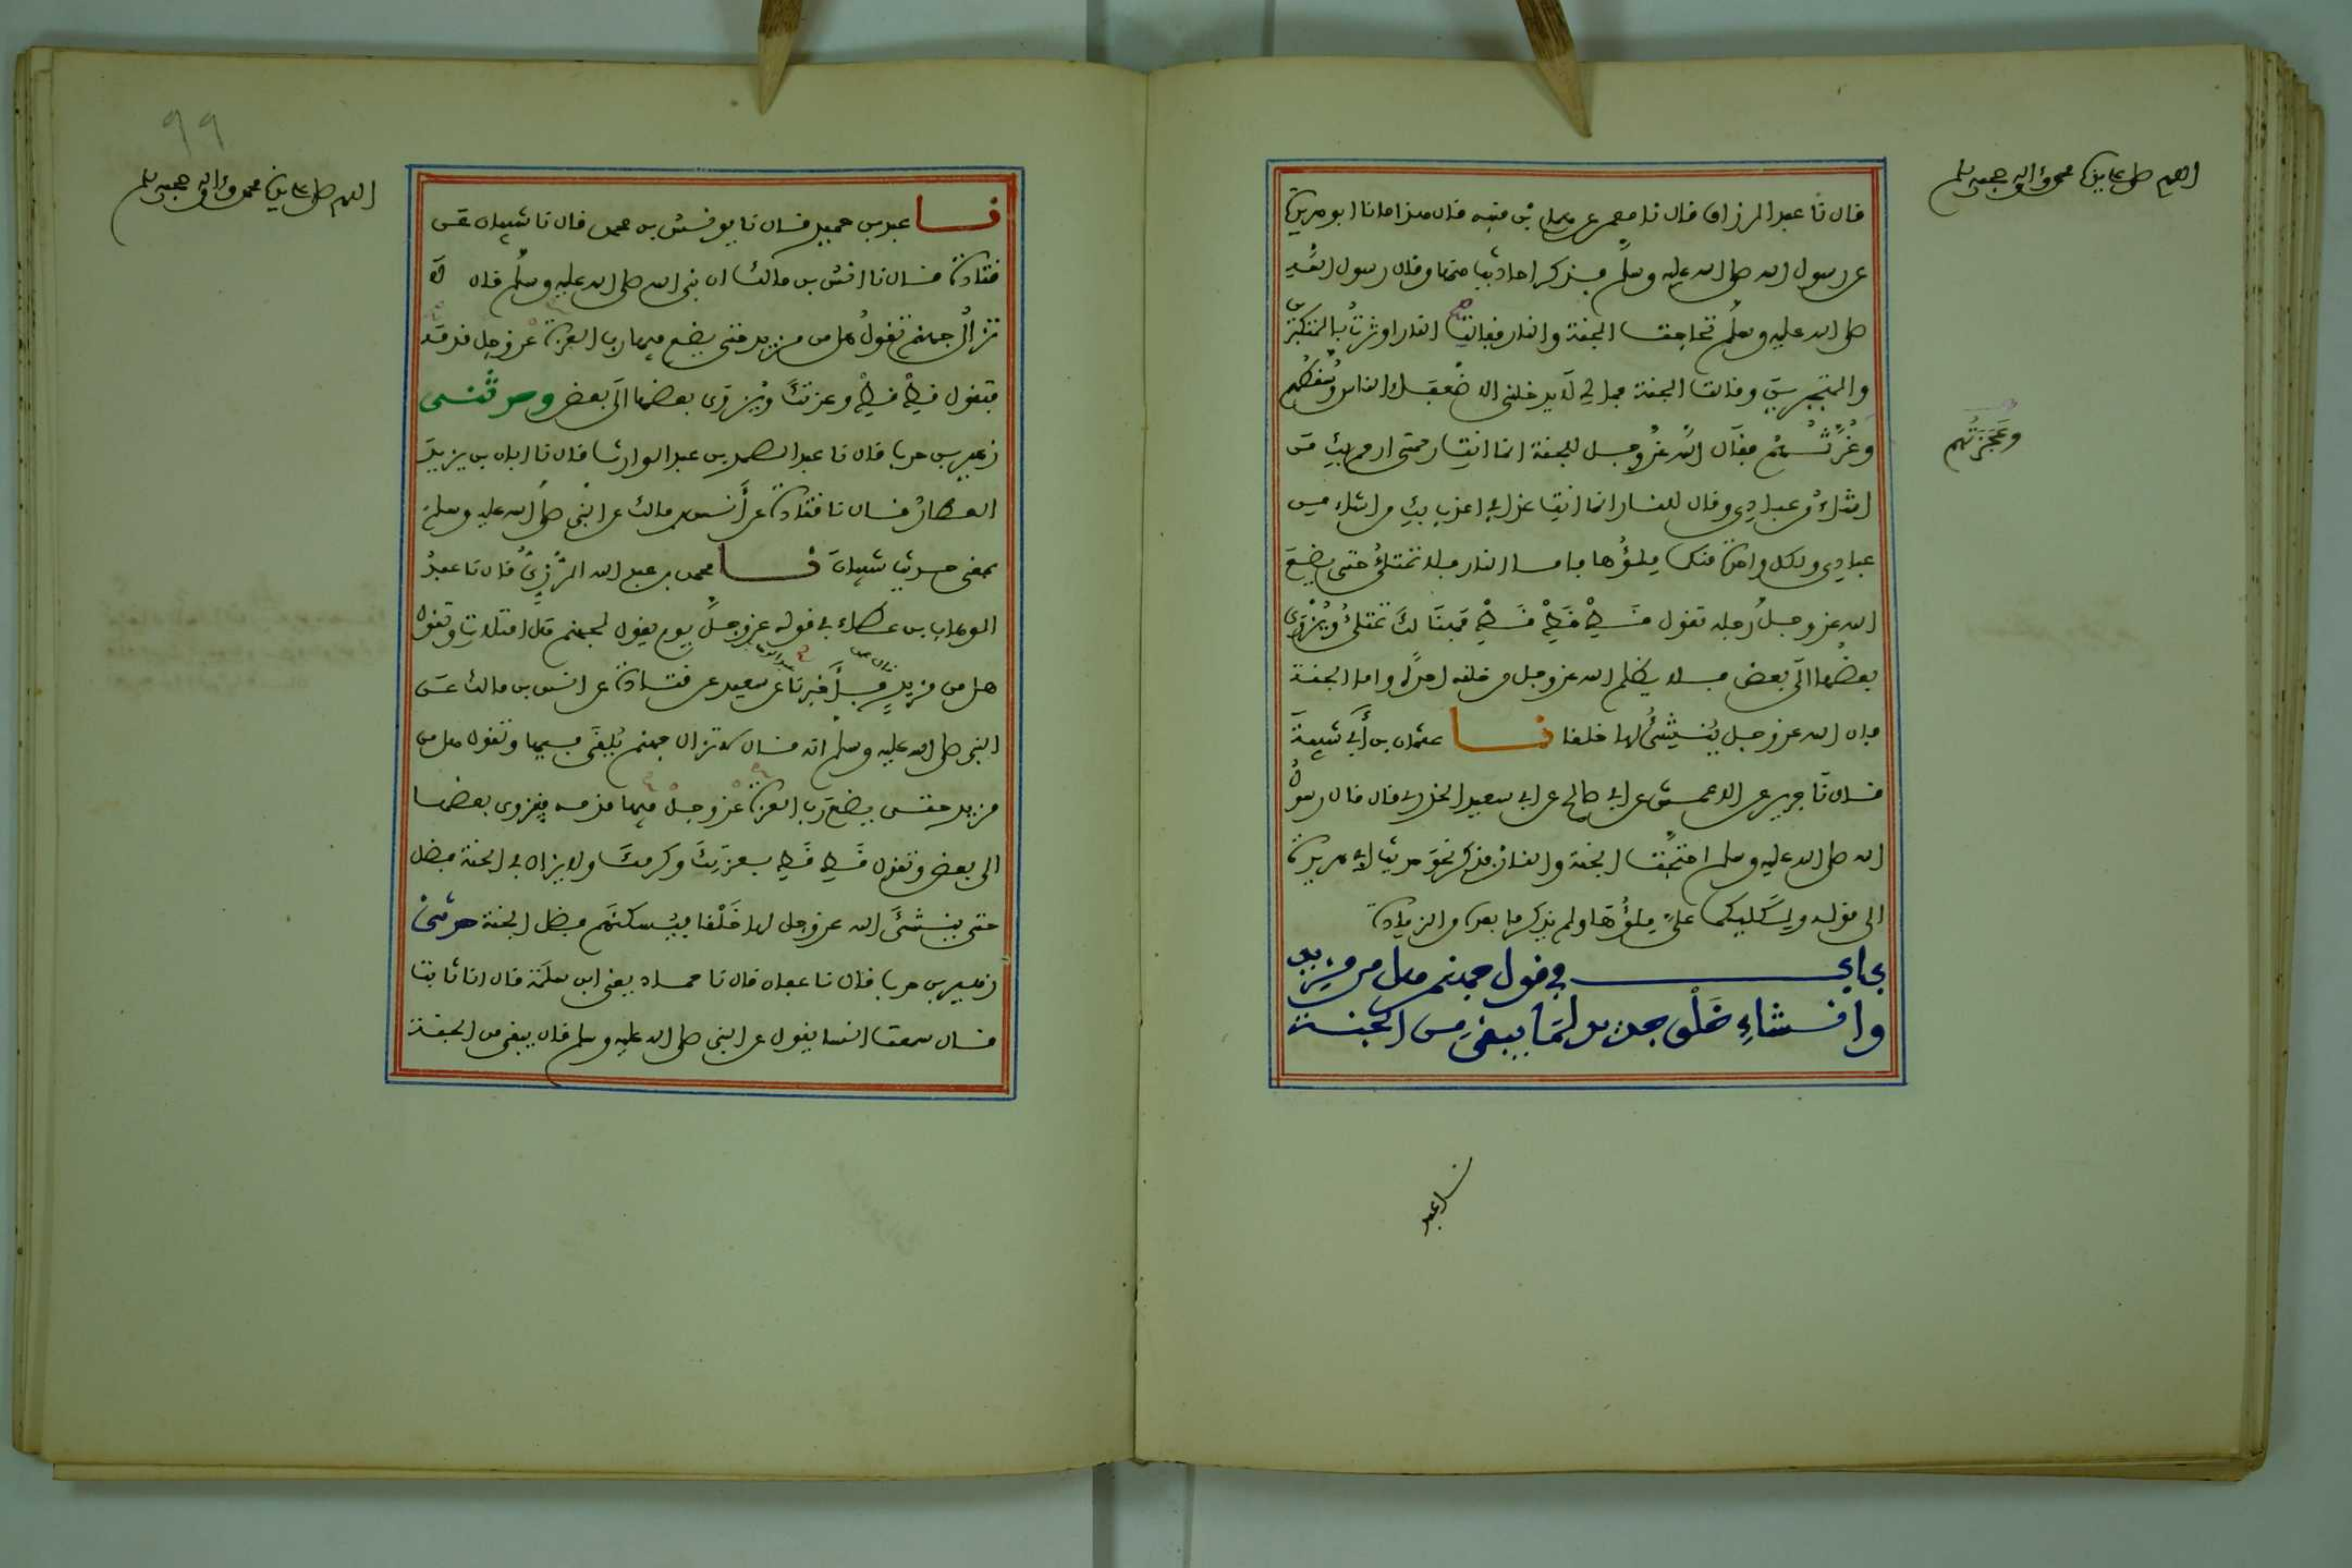 اللهم صل على سيدنا محمد وءاله وصحبه وسلم
قال نا عبد الرزاق قال نا معمر عن همام بن منبه قال هذا ما نا ابو هريرة
عن رسول الله صلى الله عليه وسلم فذكر احاديث منها وقال رسول الله
صلى الله عليه وسلم تحاجت الجنة والنار فقالت النار اوثرت بالمتكبرين
والمتجبرين وقالت الجنة فمالي لا يدخلني الا ضعفاء الناس وسفلهم
وغرتهم فقال الله عز وجل للجنة انما انت رحمتي ارحم بك من
وعجزتهم
اشاء من عبادي وقال للنار انما انت عذابي اعذب بك من اشاء من
عبادي ولكل واحدة منكما ملؤها فاما النار فلا تمتلئ حتى يضع
الله عز وجل رجله تقول قط قط قط فهنالك تمتلئ ويزوى
بعضها الى بعض فلا يظلم الله عز وجل من خلقه احدا واما الجنة
فان الله عز وجل ينشئ لها خلقا نا عثمان بن أبي شيبة
قال نا جرير عن الاعمش عن ابي صالح عن ابي سعيد الخدري قال قال رسول
الله صلى الله عليه وسلم احتجت الجنة والنار فذكر نحو حديث ابي هريرة
الى قوله ولكليكما علي ملؤها ولم يذكر ما بعده من الزيادة
باب في قول جهنم هل من مزيد
وانشاء خلق جديد لما يبقى من الجنة
نا عبد
99
اللهم صل على سيدنا محمد وءاله وصحبه وسلم
نا عبد بن حميد قال نا يونس بن محمد قال نا شيبان عن
قتادة قال نا انس بن مالك ان نبي الله صلى الله عليه وسلم قال لا
تزال جهنم تقول هل من مزيد حتى يضع فيها رب العزة عز وجل قدمه
فتقول قط قط وعزتك ويزوى بعضها الى بعض وحدثني
زهير بن حرب قال نا عبد الصمد بن عبد الوارث قال نا ابان بن يزيد
العطار قال نا قتادة عن أنس بن مالك عن النبي صلى الله عليه وسلم
بمعنى حديث شيبان نا محمد بن عبد الله الرزي قال نا عبد
الوهاب بن عطاء في قوله عز وجل يوم يقول لجهنم هل امتلات وتقول
هل من مزيد قال فاخبرنا عن سعيد عن قتادة عن انس بن مالك عن
النبي صلى الله عليه وسلم انه قال لا تزال جهنم يلقى فيها وتقول هل من
مزيد حتى يضع رب العزة عز وجل فيها قدمه فينزوي بعضها
الى بعض وتقول قط قط بعزتك وكرمك ولا يزال في الجنة فضل
حتى ينشئ الله عز وجل لها خلقا فيسكنهم فضل الجنة حدثني
زهير بن حرب قال نا عفان قال نا حماد يعني ابن سلمة قال انا ثابت
قال سمعت انسا يقول عن النبي صلى الله عليه وسلم قال يبقى من الجنة